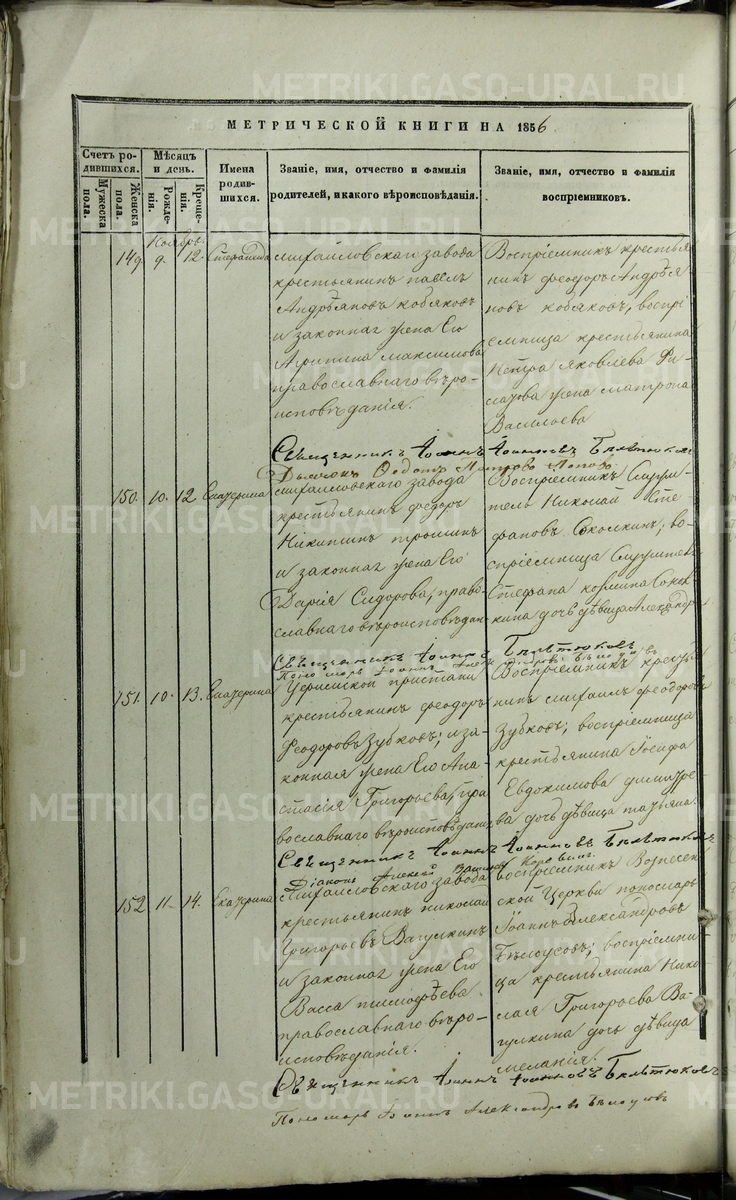 МЕТРИЧЕСКОЙ КНИГИ НА 1856
Счетъ ро-
дившихся.
Мужеска
пола.
Женска
пола.
Мѣсяцъ
и день.
Рожде-
нія.
Креще-
нія.
Имена
родив-
шихся.
Званіе, имя, отчество и фамилія
родителей, и какого вѣроисповѣданія.
Званіе, имя, отчество и фамилія
воспріемниковъ.
Ноябрь
149. 9. 12.
Михайловскаго завода
крестьянинъ павелъ
Андрѣяновъ кобяковъ
и законная жена Его
Агрипина максимова
православнаго вѣро-
исповѣданія.
Воспріемникъ крестья
нинъ феодоръ Андрѣя
новъ кобяковъ, воспрі
емница крестьянина
Петра Яковлева
жена матрона
Васильева
Священникъ Іоаннъ Іоанновъ Бѣлтюковъ
150. 10. 12. Екатерина
михаиловскаго завода
крестьянинъ федоръ
Никитинъ трошинъ
и законная жена Его
Дарія Сидорова, право
славнаго вѣроисповѣдан
Воспріемникъ Служи-
тель Николай Сте
фановъ; во
спріемница Служителя
Стефана
дочь дѣвица Александр
Священникъ Іоаннъ Бѣлтюковъ
151. 10. 13. Екатерина
Уфимской пристани
крестьянинъ феодоръ
Феодоровъ Зубковъ; и за
конная жена Его Ана
стасія Григорьева, пра
вославнаго вѣроисповѣдан
Воспріемникъ крестья
нинъ михаилъ феодоровъ
Зубковъ; воспріемница
крестьянина Іосифа
Евдокимова
ва дочь дѣвица татьяна.
Священникъ Іоаннъ Іоанновъ Бѣлтюковъ
Діаконъ Алексѣй
152 11. 14. Екатерина
Михаиловскаго завода
крестьянинъ николай
Григорьевъ Вагулкинъ
и законная жена Его
Васса тимофѣева
православнаго вѣро-
исповѣданія.
воспріемникъ Вознесен
ской Церкви пономарь
Іоаннъ Александровъ
Бѣлоусовъ; воспріемни-
ца крестьянина Нико
лая Григорьева Ва
гулкина дочь дѣвица
меланія.
Священникъ Іоаннъ Іоанновъ Бѣлтюковъ
Пономарь Іоаннъ Александровъ Бѣлоусовъ
METRIKI.GASO-URAL.RU